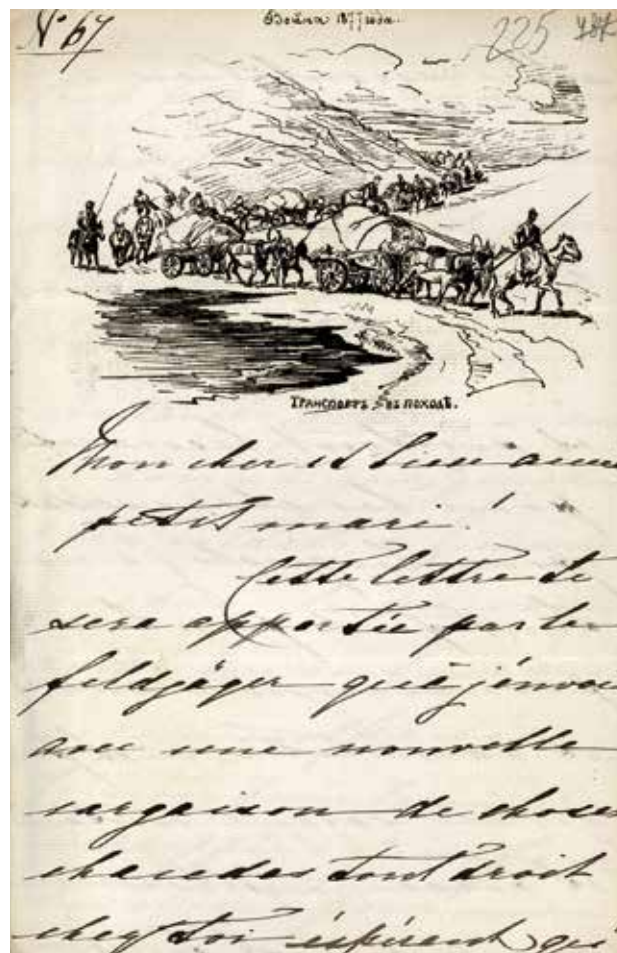 № 67
Война 1877 года.
225
ТРАНСПОРТЪ ВЪ ПОХОДѢ.
Mon cher et bien aimé
petit mari!
Cette lettre te
sera apportée par le
feldjäger que j'envoi
avec une nouvelle
cargaison de choses
chaudes tout droit
chez toi éspérant qu